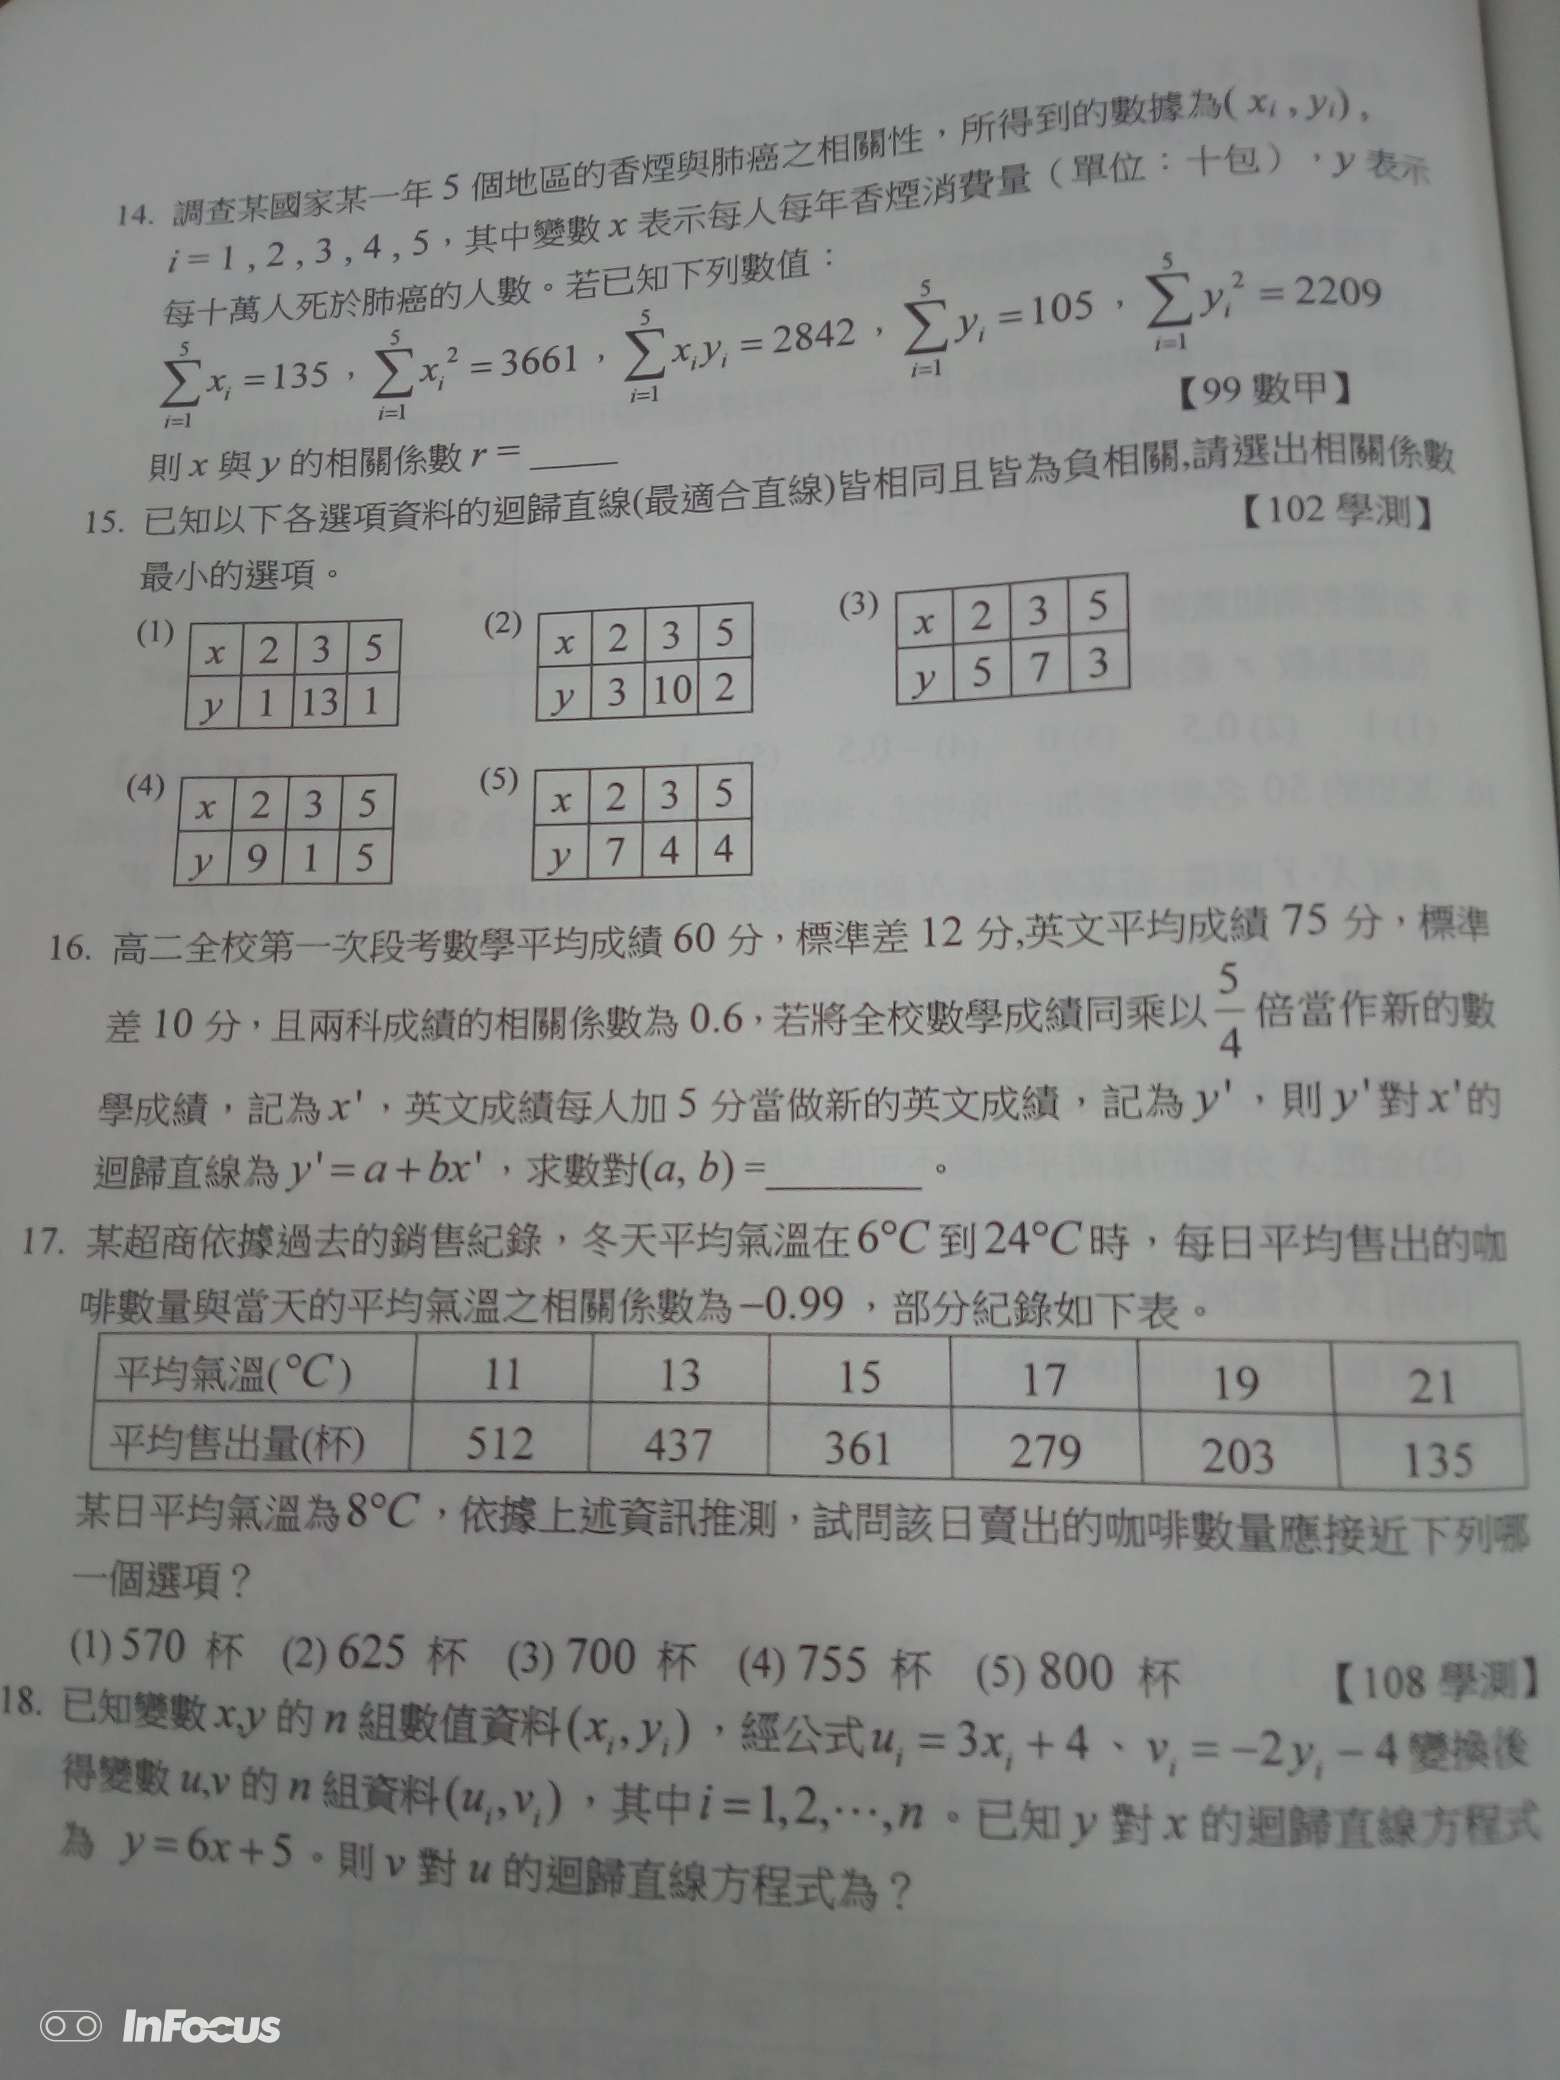 14. 調查某國家某一年 5 個地區的香煙與肺癌之相關性，所得到的數據為( xᵢ , yᵢ)，
i = 1 , 2 , 3 , 4 , 5，其中變數 x 表示每人每年香煙消費量（單位：十包），y 表示
每十萬人死於肺癌的人數。若已知下列數值：
∑_{i=1}^{5} xᵢ = 135，∑_{i=1}^{5} xᵢ² = 3661，∑_{i=1}^{5} xᵢyᵢ = 2842，∑_{i=1}^{5} yᵢ = 105，∑_{i=1}^{5} yᵢ² = 2209
則 x 與 y 的相關係數 r = ____ 【99 數甲】
15. 已知以下各選項資料的迴歸直線(最適合直線)皆相同且皆為負相關,請選出相關係數
最小的選項。 【102 學測】
(1) x 2 3 5 (2) x 2 3 5 (3) x 2 3 5
y 1 13 1 y 3 10 2 y 5 7 3
(4) x 2 3 5 (5) x 2 3 5
y 9 1 5 y 7 4 4
16. 高二全校第一次段考數學平均成績 60 分，標準差 12 分,英文平均成績 75 分，標準
差 10 分，且兩科成績的相關係數為 0.6，若將全校數學成績同乘以 5/4 倍當作新的數
學成績，記為 x'，英文成績每人加 5 分當做新的英文成績，記為 y'，則 y' 對 x' 的
迴歸直線為 y' = a + bx'，求數對(a, b) =________。
17. 某超商依據過去的銷售紀錄，冬天平均氣溫在 6°C 到 24°C 時，每日平均售出的咖
啡數量與當天的平均氣溫之相關係數為 −0.99，部分紀錄如下表。
平均氣溫(°C) 11 13 15 17 19 21
平均售出量(杯) 512 437 361 279 203 135
某日平均氣溫為 8°C，依據上述資訊推測，試問該日賣出的咖啡數量應接近下列哪
一個選項？
(1) 570 杯 (2) 625 杯 (3) 700 杯 (4) 755 杯 (5) 800 杯 【108 學測】
18. 已知變數 x,y 的 n 組數值資料(xᵢ, yᵢ)，經公式 uᵢ = 3xᵢ + 4、vᵢ = −2yᵢ − 4 變換後
得變數 u,v 的 n 組資料(uᵢ, vᵢ)，其中 i = 1,2,⋯,n。已知 y 對 x 的迴歸直線方程式
為 y = 6x + 5。則 v 對 u 的迴歸直線方程式為？
InFocus